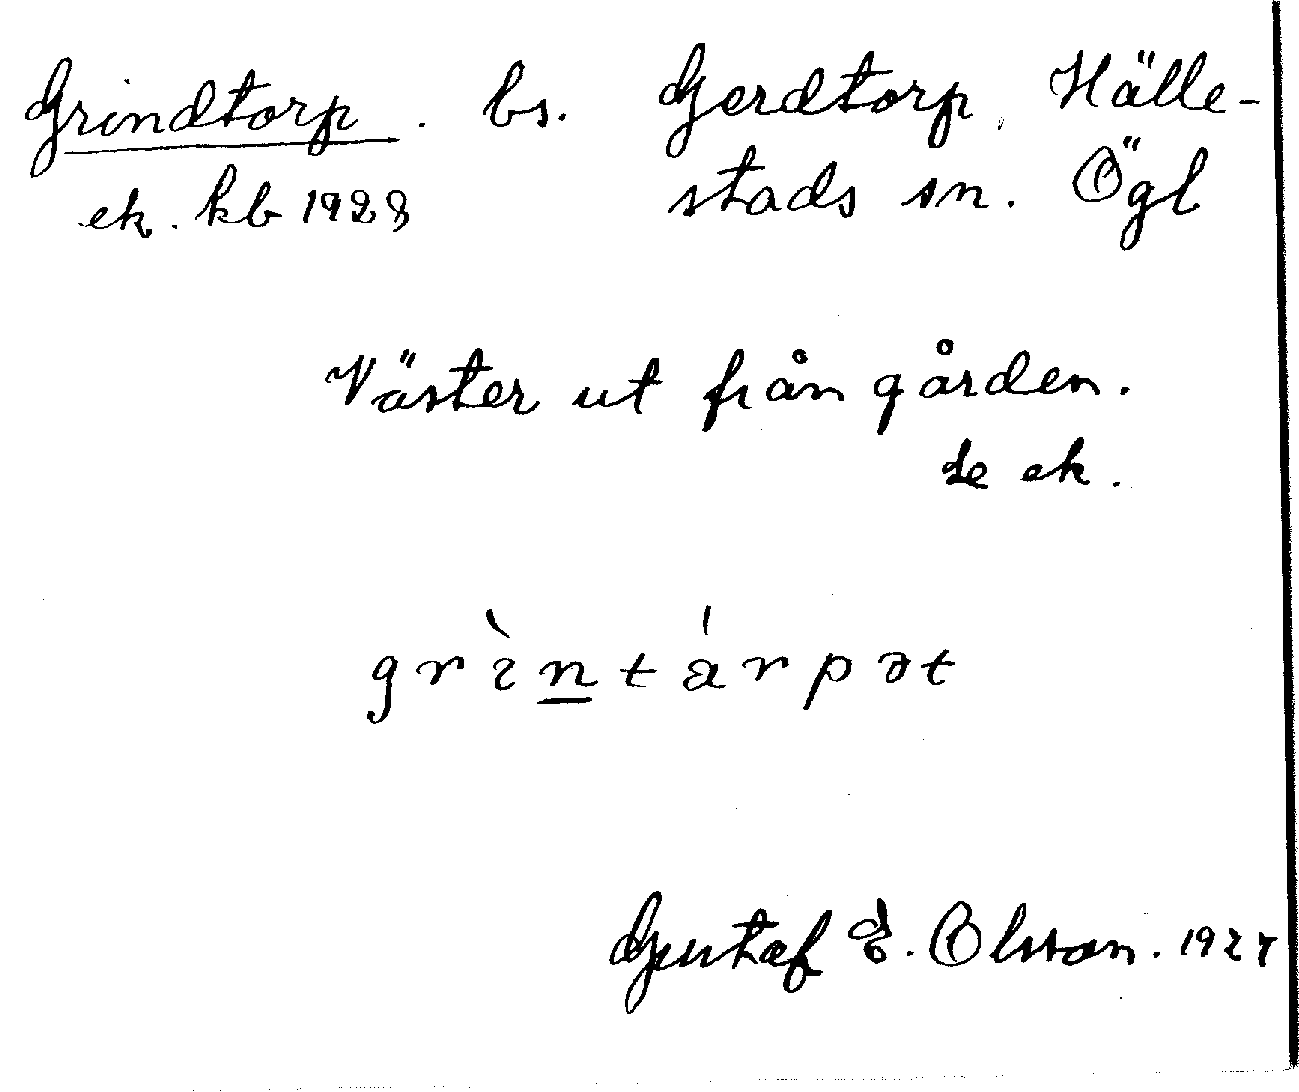 Grindtorp. bs. Gerdtorp, Hälle-
ek. kb 1928 stads sn. Ögl
Väster ut från gården.
Se ek.
grìntárpət
Gustaf E. Olsson. 1927